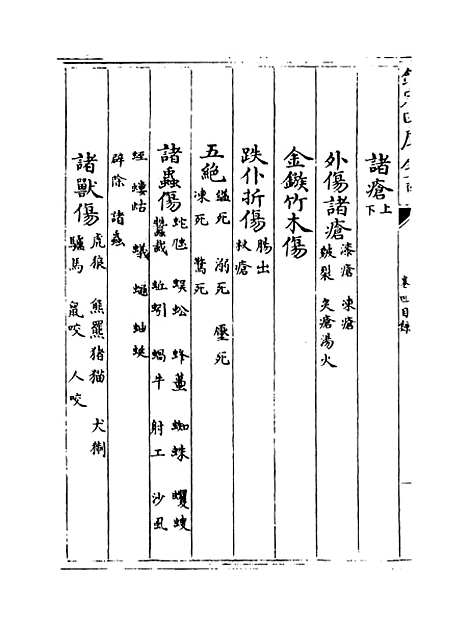 卷四目錄
諸瘡上
下
外傷諸瘡漆瘡 凍瘡
皴裂 灸瘡 湯火
金鏃竹木傷
跌仆折傷腸出
杖瘡
五絕縊死 溺死 壓死
凍死 驚死
諸蟲傷蛇虺 蜈蚣 蜂蠆 蜘蛛 蠼螋
蠶 蚯蚓 蝸牛 射工 沙虱
蛭 螻蛄 蟻 蠅 蚰蜒
辟除諸蟲
諸獸傷虎狼 熊羆 猪猫 犬猘
驢馬 鼠咬 人咬